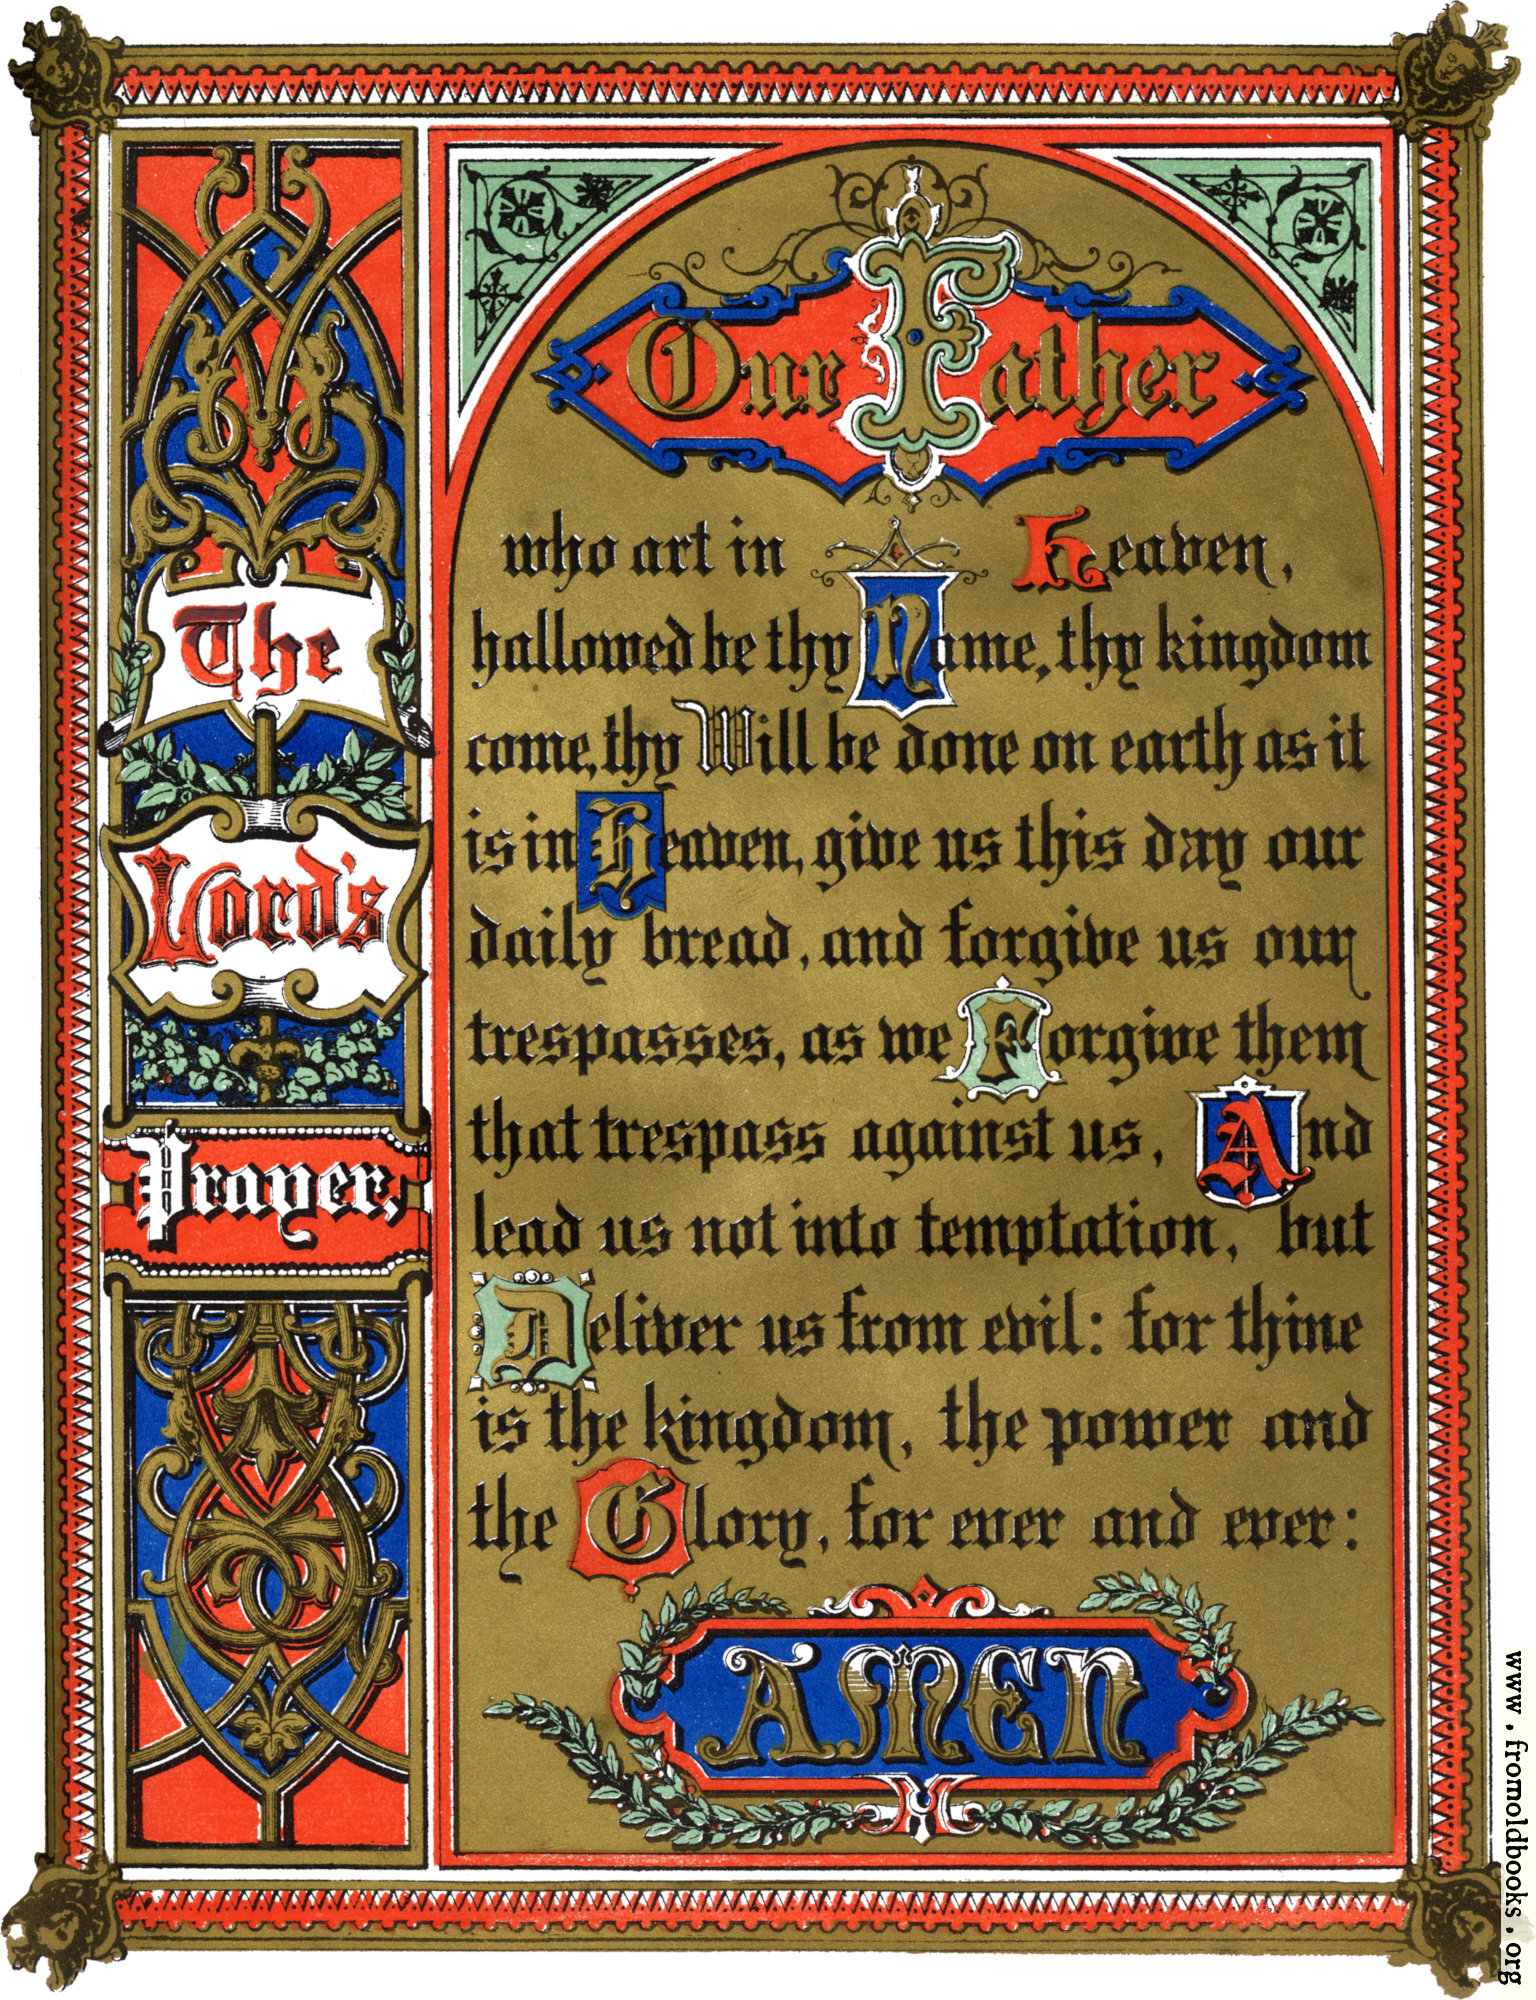 The
Lord's
Prayer,
Our Father
who art in Heaven,
hallowed be thy Name, thy kingdom
come, thy Will be done on earth as it
is in Heaven, give us this day our
daily bread, and forgive us our
trespasses, as we Forgive them
that trespass against us, And
lead us not into temptation, but
Deliver us from evil: for thine
is the kingdom, the power and
the Glory, for ever and ever:
AMEN
www.fromoldbooks.org